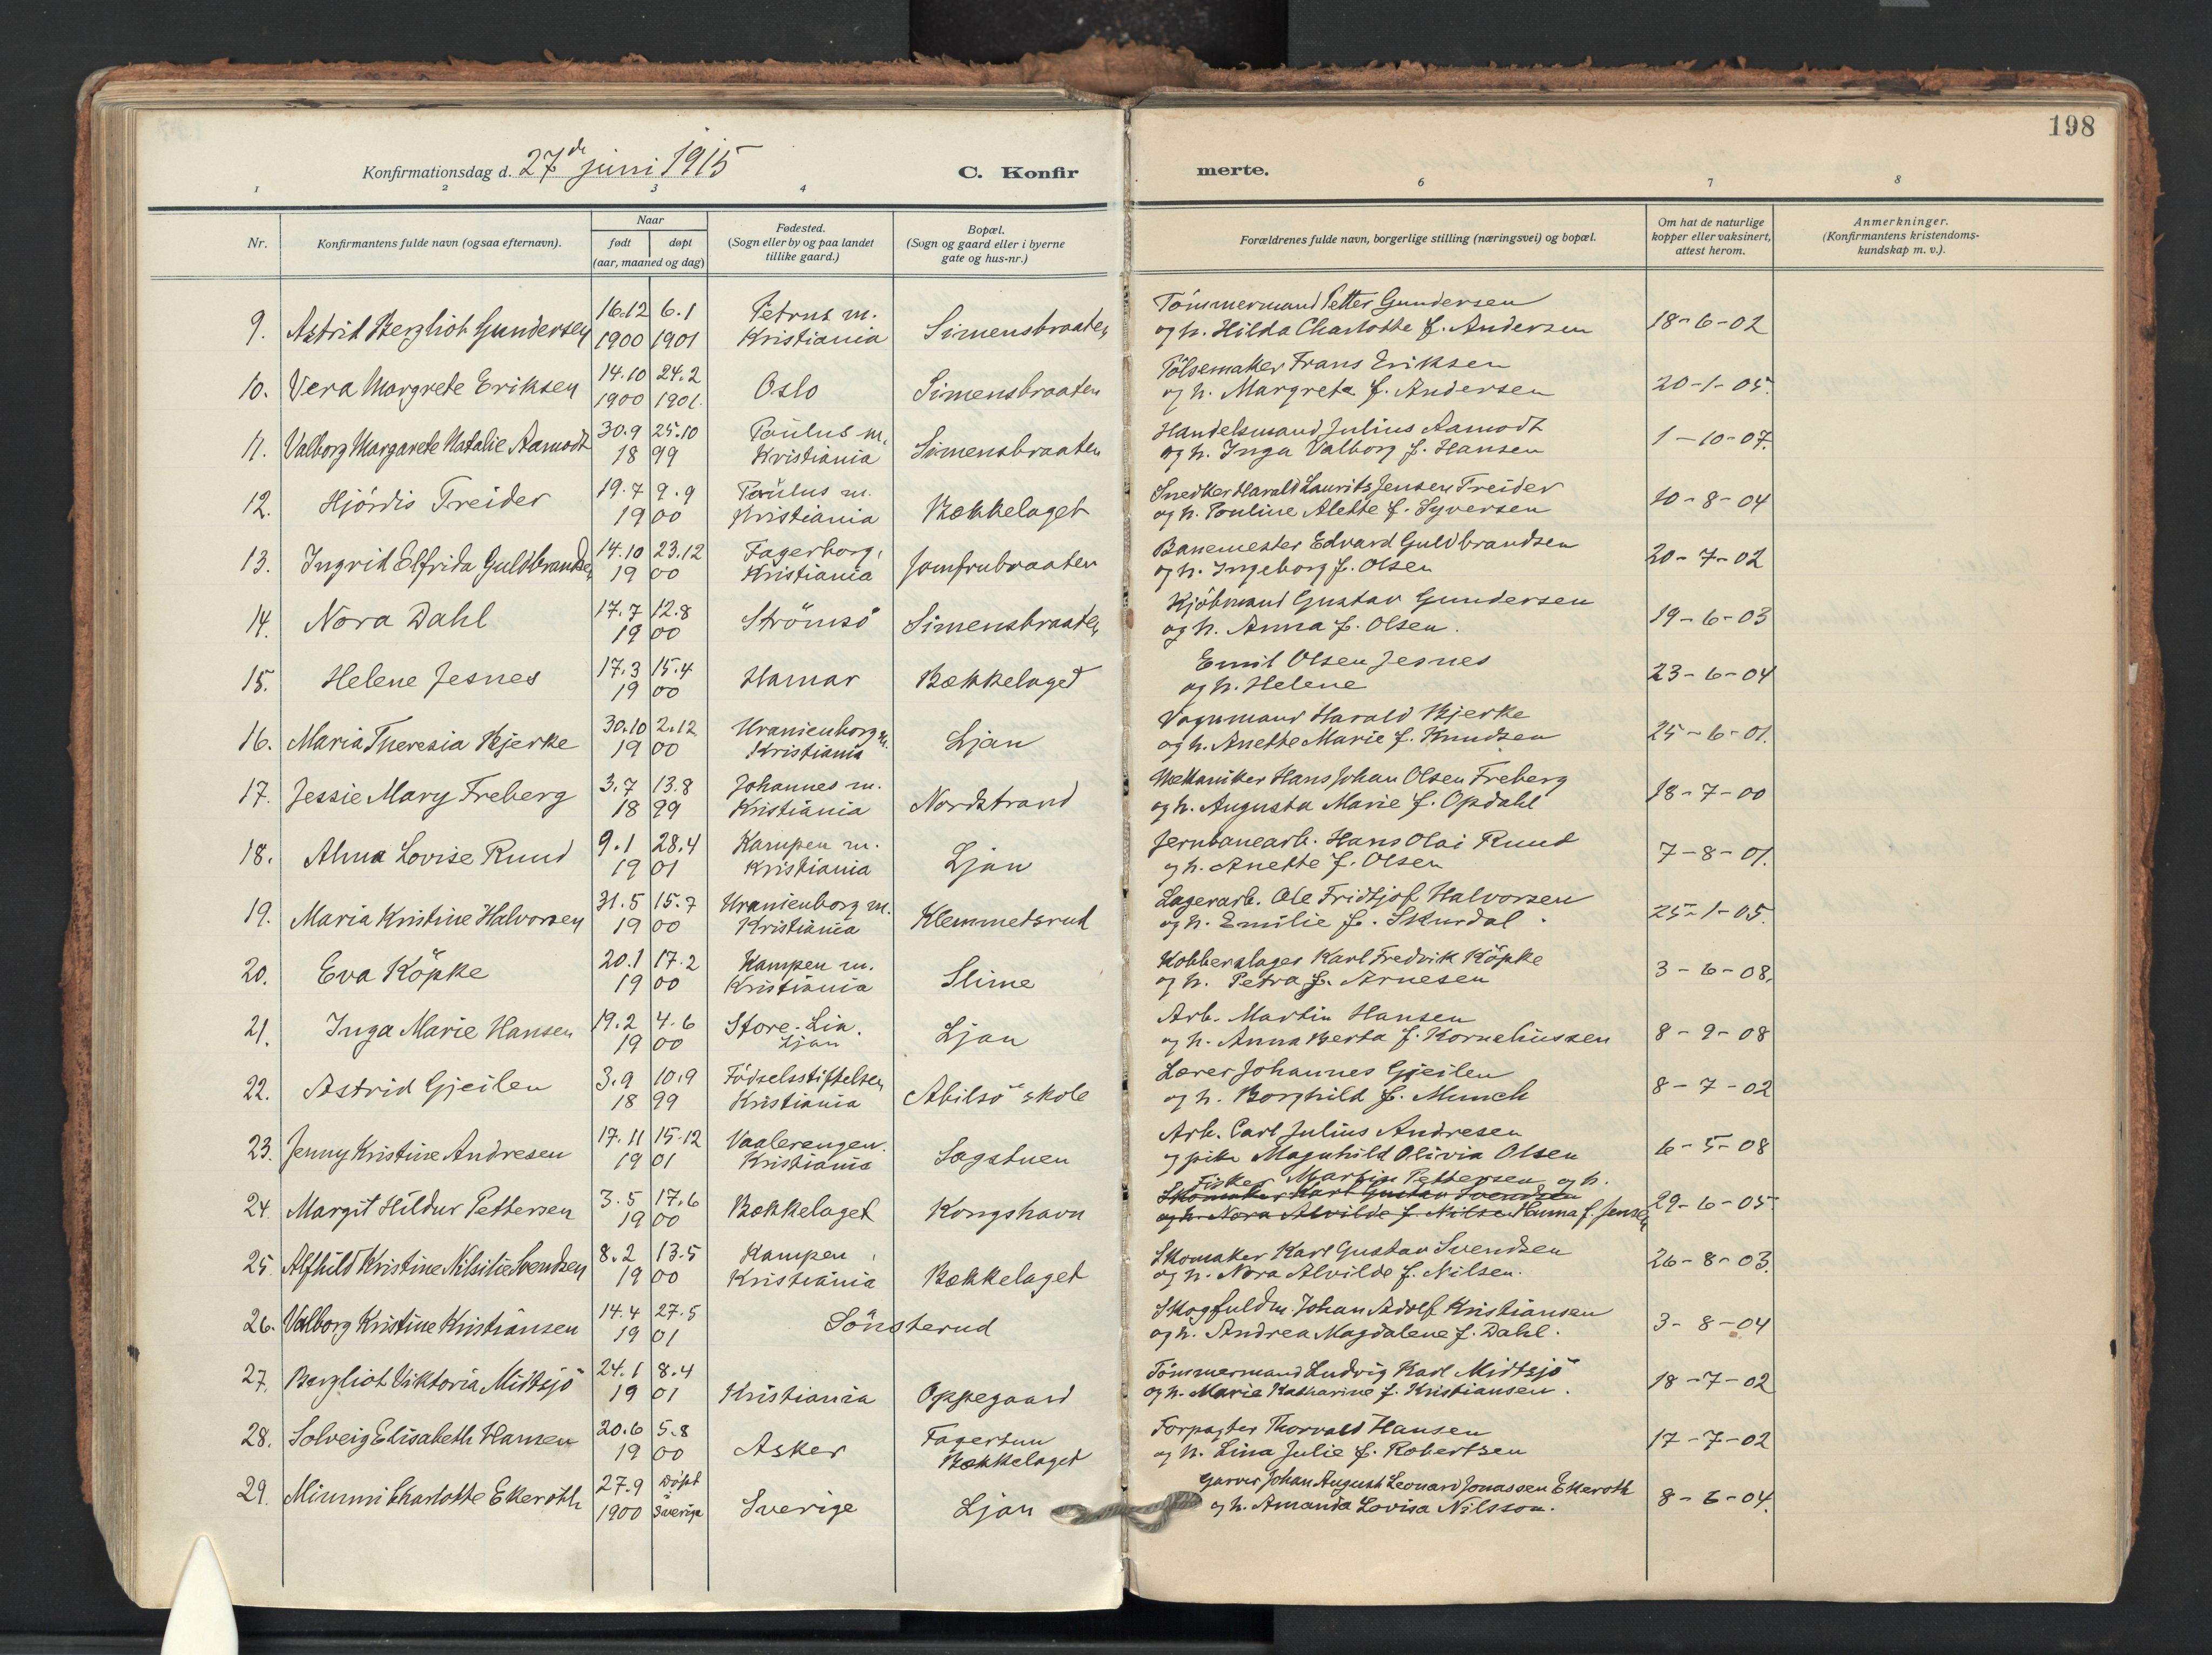 198
Konfirmationsdag d. 27de juni 1915
C. Konfirmerte.
1 2 3 4 6 7 8
Nr. Konfirmantens fulde navn (ogsaa efternavn). Naar født døpt (aar, maaned og dag) Fødested. (Sogn eller by og paa landet tillike gaard.) Bopæl. (Sogn og gaard eller i byerne gate og hus-nr.) Forældrenes fulde navn, borgerlige stilling (næringsvei) og bopæl. Om hat de naturlige kopper eller vaksinert, attest herom. Anmerkninger. (Konfirmantens kristendoms-kundskap m. v.).
9. Astrid Bergliot Gundersen 16.12 1900 6.1 1901 Petrus m. Kristiania Simensbraaten Tömmermand Petter Gundersen og h. Hilda Charlotte f. Andersen 18-6-02
10. Vera Margrete Eriksen 14.10 1900 24.2 1901. Oslo Simensbraaten Pölsemaker Frans Eriksen og h. Margrete f. Andersen 20-1-05.
11. Valborg Margarete Natalie Aamodt 30.9 25.10 18 99 Paulus m. Kristiania Simensbraaten Handelsmand Julius Aamodt og h. Inga Valborg f. Hansen 1-10-07.
12. Hjördis Treider 19.7 9.9 19 00 Paulus m. Kristiania Bækkelaget Snedker Harald Laurits Jensen Treider og h. Pouline Alette f. Syversen 10-8-04
13. Ingrid Elfrida Guldbrandsen 14.10 23.12 19 00 Fagerborg, Kristiania Jomfrubraaten Banemester Edvard Guldbrandsen og h. Ingeborg f. Olsen 20-7-02
14. Nora Dahl 17.7 12.8 19 00 Strömsö Simensbraaten Kjöbmand Gustav Gundersen og h. Anna f. Olsen. 19-6-03
15. Helene Jesnes 17.3 15.4 19 00 Hamar Bækkelaget Emil Olsen Jesnes og h. Helene 23-6-04
16. Maria Theresia Bjerke 30.10 2.12 19 00 Uranienborg m. Kristiania Ljan Vognmand Harald Bjerke og h. Anette Marie f. Knudsen 25-6-01.
17. Jessie Mary Freberg 3.7 13.8 18 99 Johannes m. Kristiania Nordstrand Mekaniker Hans Johan Olsen Freberg og h. Augusta Marie f. Opdahl 18-7-00
18. Alma Lovise Ruud 9.1 28.4 19 01 Kampen m. Kristiania Ljan Jernbanearb. Hans Olai Ruud og h. Anette f. Olsen 7-8-01.
19. Maria Kristine Halvorsen 31.5 15.7 19 00 Uranienborg m. Kristiania Klemmetsrud Lagerarb. Ole Fridtjof Halvorsen og h. Emilie f. Skurdal. 25-1-05.
20. Eva Köpke 20.1 17.2 19 00 Kampen m. Kristiania Slime Kobberslager Karl Fredrik Köpke og h. Petra f. Arnesen 3-6-08.
21. Inga Marie Hansen 19.2 4.6 19 00 Store-Lia. Ljan Ljan Arb. Martin Hansen og h. Anna Berta f. Korneliussen 8-9-08
22. Astrid Gjeilen 3.9 10.9 18 99 Födselsstiftelsen Kristiania Abilsö skole Lærer Johannes Gjeilen og h. Borghild f. Munch 8-7-02
23. Jenny Kristine Andresen 17.11 15.12 19 01 Vaalerengen. Kristiania Sagstuen Arb. Carl Julius Andresen og pike Magnhild Olivia Olsen 6-5-08
24. Margit Hildur Pettersen 3.5 17.6 19 00 Bækkelaget Kongshavn Fisker Martin Pettersen og h. Skomaker Karl Gustav Svendsen og h. Nora Alvilde f. Nilsen Hanna f. Jensen 29-6-05
25. Alfhild Kristine Nilsilie Svendsen 8.2 13.5 19 00 Kampen, Kristiania Bækkelaget Skomaker Karl Gustav Svendsen og h. Nora Alvilde f. Nilsen. 26-8-03.
26. Valborg Kristine Kristiansen 14.4 27.5 19 01 Sönsterud Skogfuldm. Johan Adolf Kristiansen og h. Andrea Magdalene f. Dahl. 3-8-04
27. Bergliot Viktoria Midtsjö 24.1 8.4 19 01 Kristiania Oppegaard Tömmermand Ludvig Karl Midtsjö og h. Marie Katharine f. Kristiansen. 18-7-02
28. Solveig Elisabeth Hansen 20.6 5.8 19 00 Asker Fagertun Bækkelaget Forpagter Thorvald Hansen og h. Lina Julie f. Robertsen 17-7-02
29. Mimmi Charlotte Ekeroth 27.9 1900 Döpt i Sverige Sverige Ljan Garver Johan August Leonard Jonassen Ekeroth og h. Amanda Lovisa Nilsson. 8-6-04.